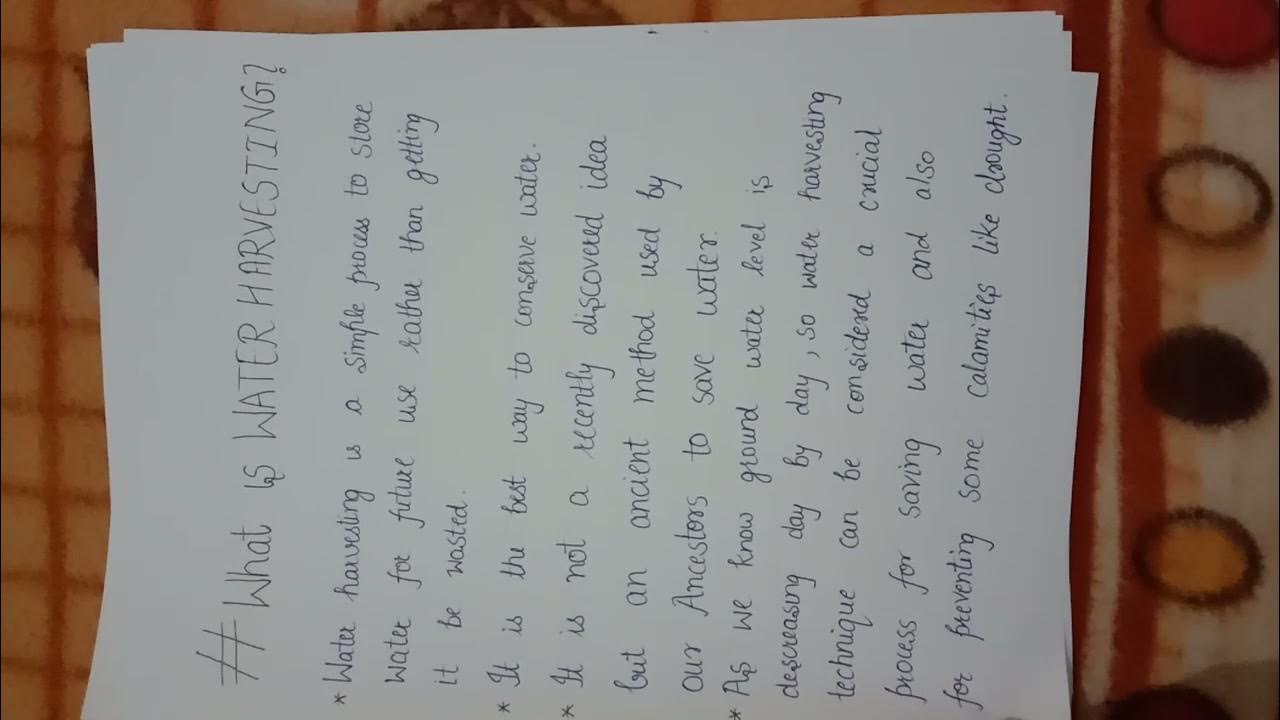 # What is WATER HARVESTING?
* Water harvesting is a simple process to store
water for future use rather than getting
it be wasted.
* It is the best way to conserve water.
* It is not a recently discovered idea
but an ancient method used by
our Ancestors to save water.
* As we know ground water level is
descreasing day by day, so water harvesting
technique can be considerd a crucial
process for saving water and also
for preventing some calamities like drought.